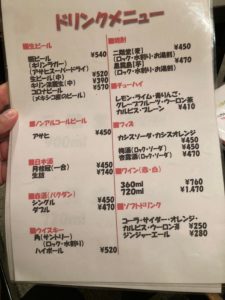 ドリンクメニュー
■生ビール
¥540
■ビール
(キリンラガー)
(アサヒスーパードライ)
生ビール(中) ¥520
生ビール(小) ¥390
キリン淡麗生 ¥570
コロナビール
(メキシコ産のビール)
■ノンアルコールビール
アサヒ ¥450
■日本酒
月桂冠(一合) ¥450
生詰 ¥740
シングル ¥450
ダブル ¥470
■ウイスキー
角(サントリー)
(ロック・水割り)
ハイボール ¥520
■焼酎
二階堂(麦) ¥450
(ロック・水割り・お湯割)
黒霧島(芋)
(ロック・水割り・お湯割)
■チューハイ
レモン・ライム・青りんご・
グレープフルーツ・ウーロン茶
カルピス・プレーン ¥450
■フィズ
カシスソーダ・カシスオレンジ
¥450
梅酒(ロック・ソーダ) ¥450
杏露酒(ロック・ソーダ) ¥470
■ワイン(赤・白)
360ml ¥760
720ml ¥1.470
■ソフトドリンク
コーラ・サイダー・オレンジ・
カルピス・ウーロン茶 ¥250
ジンジャーエール ¥280